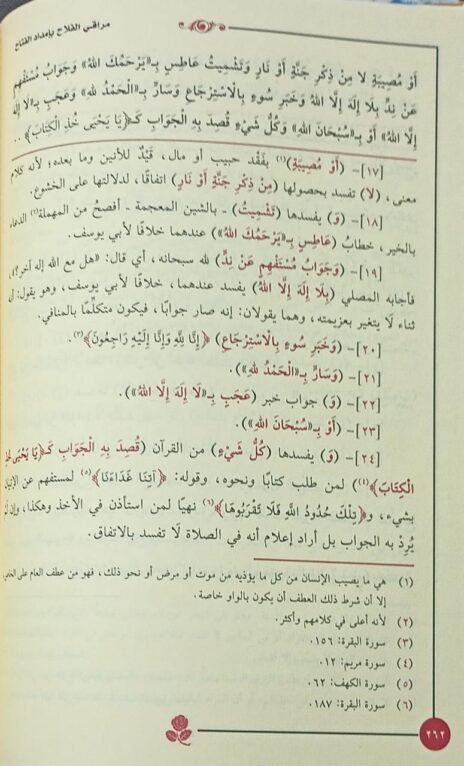 مراقي الفلاح بإمداد الفتاح
أَوْ مُصِيبَةٍ لا مِنْ ذِكْرِ جَنَّةٍ أَوْ نَارٍ وَتَشْمِيتُ عَاطِسٍ بِـ«يَرْحَمُكَ اللهُ» وَجَوَابُ مُسْتَفْهِمٍ
عَنْ نِدٍّ بِلَا إِلَهَ إِلَّا اللهُ وَخَبَرِ سُوءٍ بِالْاسْتِرْجَاعِ وَسَارٍّ بِـ«الْحَمْدُ لِلهِ» وَعَجَبٍ بِـ«لَا إِلَهَ
إِلَّا اللهُ» أَوْ بِـ«سُبْحَانَ اللهِ» وَكُلُّ شَيْءٍ قُصِدَ بِهِ الْجَوَابُ كَـ﴿يَا يَحْيَى خُذِ الْكِتَابَ﴾ ..
[١٧]- (أَوْ مُصِيبَةٍ)(١) بفَقْد حبيب أو مال، قَيْدٌ للأنين وما بعده؛ لأنه كلام
معنى، (لَا) تفسد بحصولها (مِنْ ذِكْرِ جَنَّةٍ أَوْ نَارٍ) اتفاقًا، لدلالتها على الخشوع.
[١٨]- (وَ) يفسدها (تَشْمِيتُ) - بالشين المعجمة - أفصحُ من المهملة(٢) الدعاء
بالخير، خطابُ (عَاطِسٍ بِـ«يَرْحَمُكَ اللهُ») عندهما خلافًا لأبي يوسف.
[١٩]- (وَجَوَابُ مُسْتَفْهِمٍ عَنْ نِدٍّ) لله سبحانه، أي قال: «هل مع الله إله آخر؟»،
فأجابه المصلي (بِلَا إِلَهَ إِلَّا اللهُ) يفسد عندهما، خلافًا لأبي يوسف، وهو يقول: إن
ثناء لا يتغير بعزيمته، وهما يقولان: إنه صار جوابًا، فيكون متكلِّمًا بالمنافي.
[٢٠]- (وَخَبَرِ سُوءٍ بِالْاسْتِرْجَاعِ) ﴿إِنَّا لِلَّهِ وَإِنَّا إِلَيْهِ رَاجِعُونَ﴾(٣).
[٢١]- (وَسَارٍّ بِـ«الْحَمْدُ لِلهِ»).
[٢٢]- (وَ) جواب خبر (عَجَبٍ بِـ«لَا إِلَهَ إِلَّا اللهُ»).
[٢٣]- (أَوْ بِـ«سُبْحَانَ اللهِ»).
[٢٤]- (وَ) يفسدها (كُلُّ شَيْءٍ) من القرآن (قُصِدَ بِهِ الْجَوَابُ كَـ﴿يَا يَحْيَى خُذِ
الْكِتَابَ﴾(٤)) لمن طلب كتابًا ونحوه، وقوله: ﴿آتِنَا غَدَاءَنَا﴾(٥) لمستفهم عن الإتيان
بشيء، و﴿تِلْكَ حُدُودُ اللَّهِ فَلَا تَقْرَبُوهَا﴾(٦) نهيًا لمن استأذن في الأخذ وهكذا، وإن لم
يُرِدْ به الجواب بل أراد إعلام أنه في الصلاة لا تفسد بالاتفاق.
(١) هي ما يصيب الإنسان من كل ما يؤذيه من موت أو مرض أو نحو ذلك، فهو من عطف العام على الخاص،
إلا أن شرط ذلك العطف أن يكون بالواو خاصة.
(٢) لأنه أعلى في كلامهم وأكثر.
(٣) سورة البقرة: ١٥٦.
(٤) سورة مريم: ١٢.
(٥) سورة الكهف: ٦٢.
(٦) سورة البقرة: ١٨٧.
٢٦٢